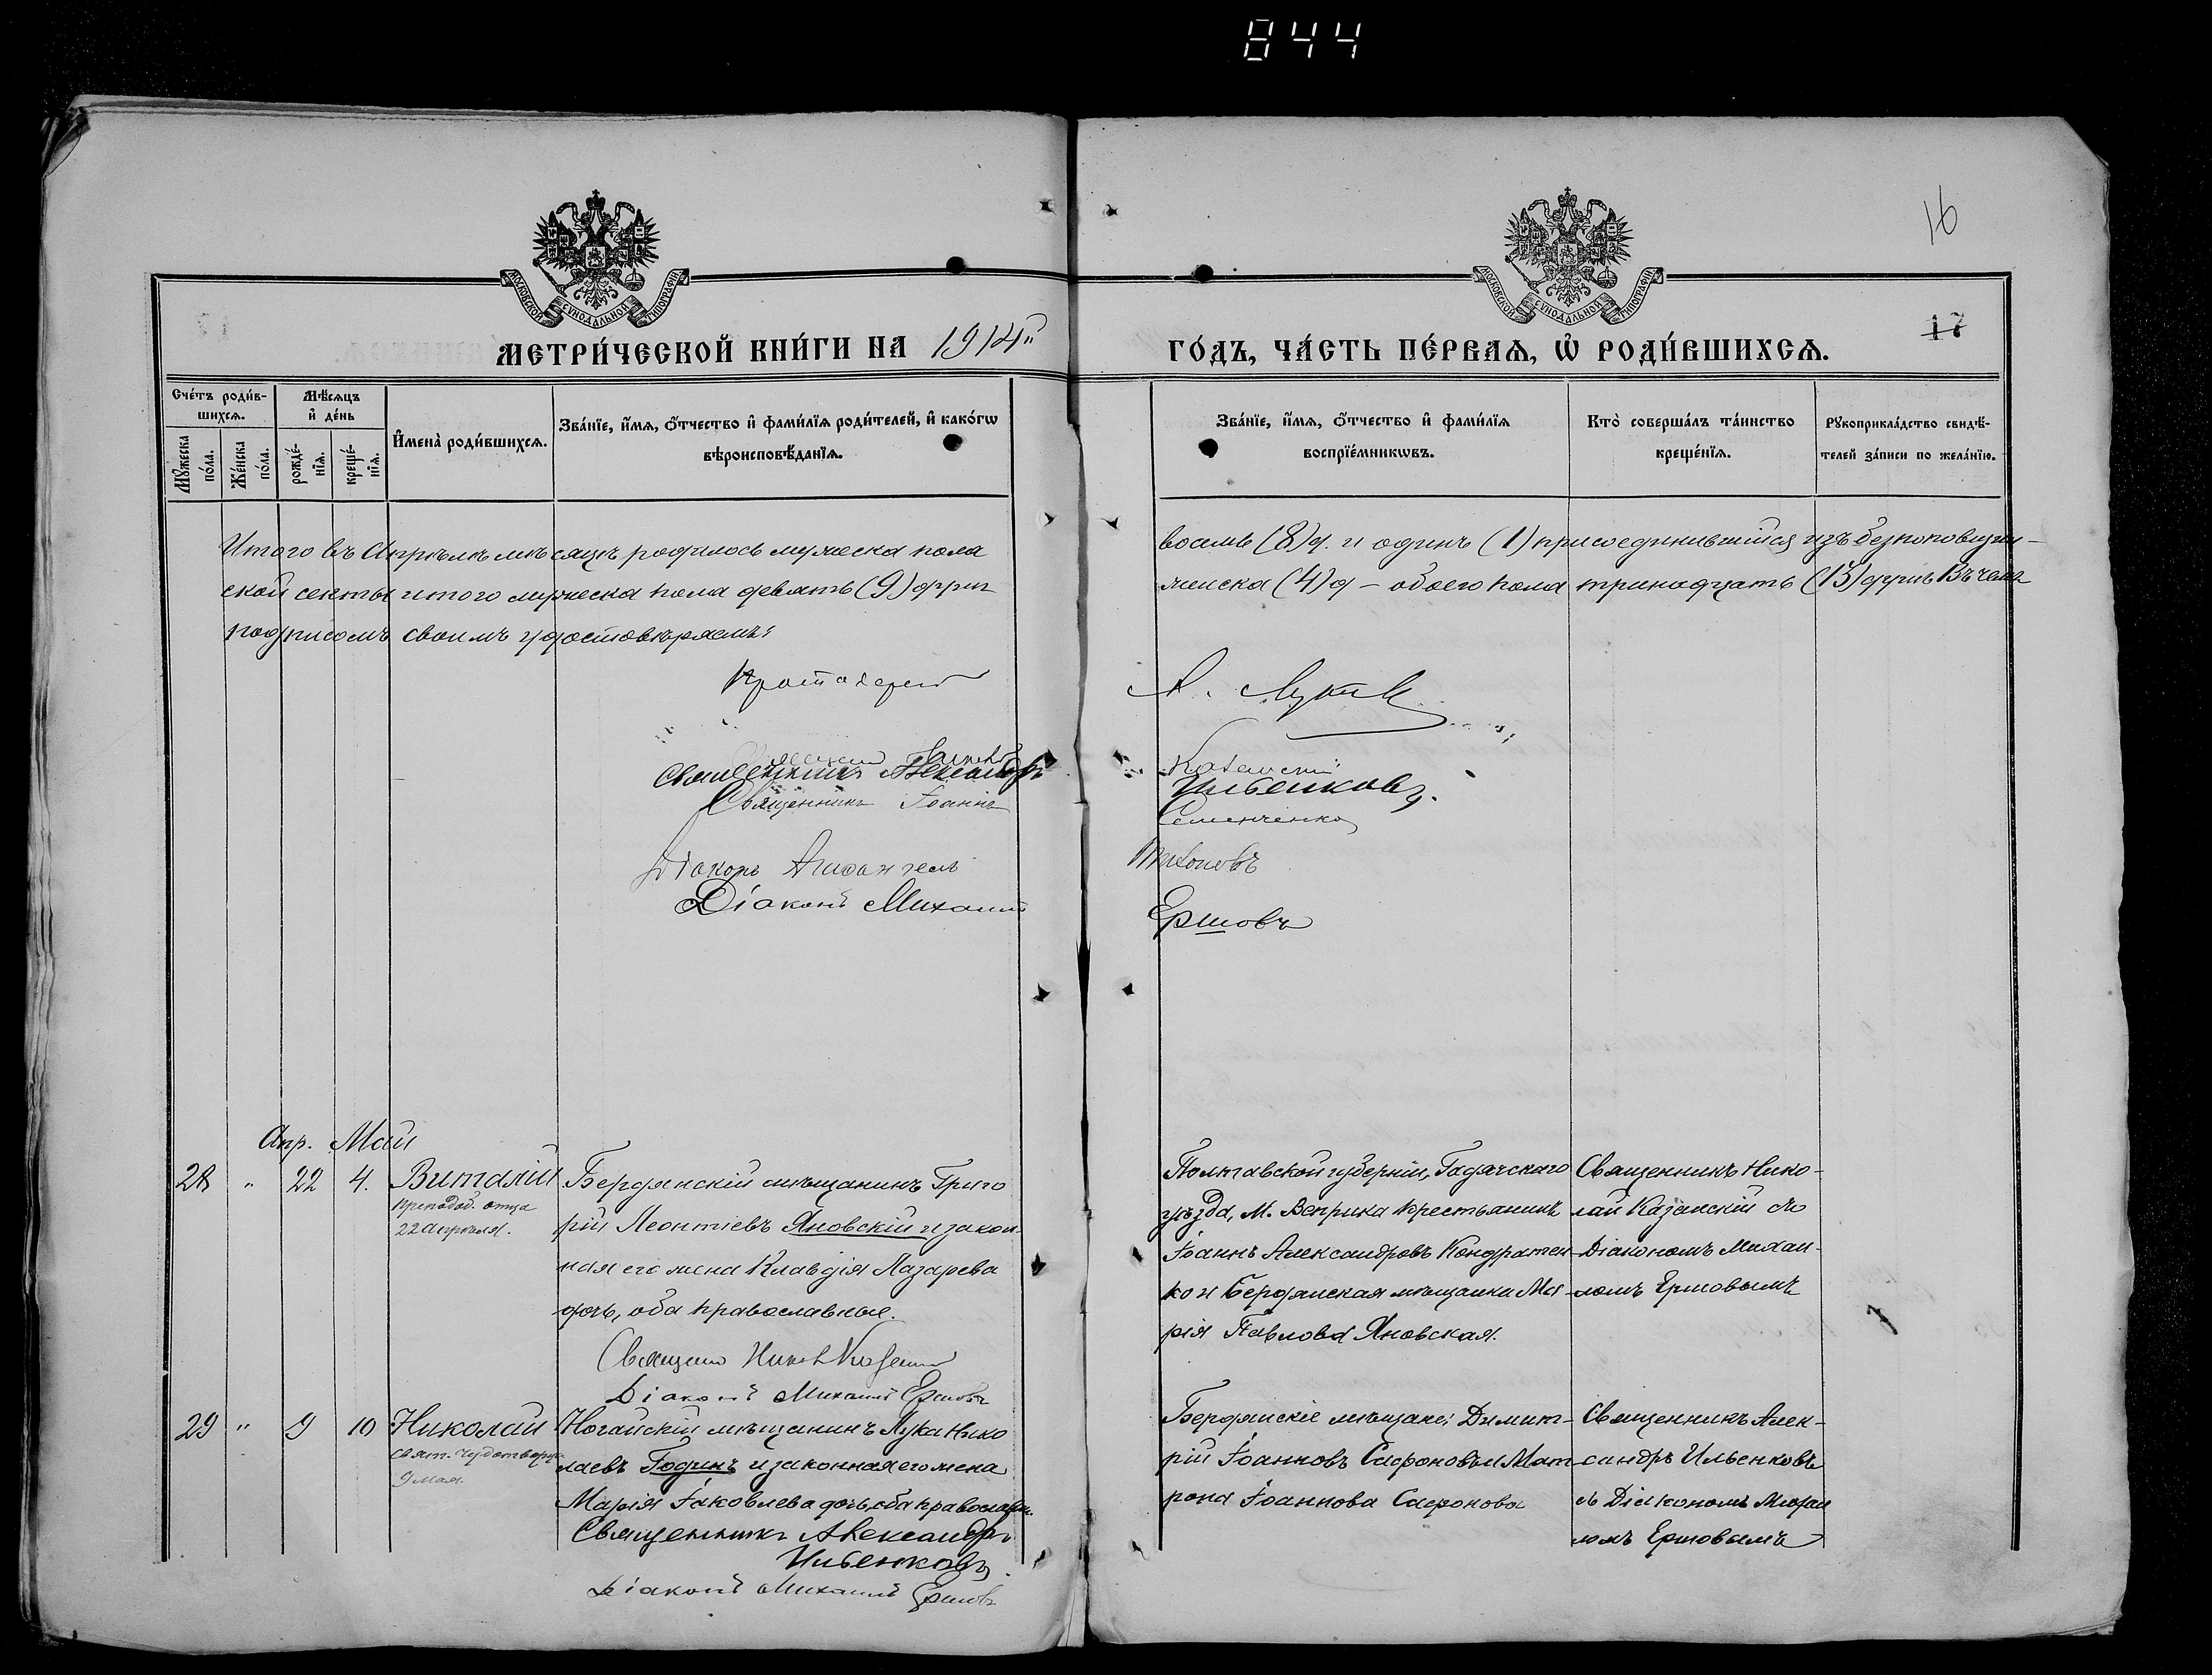 844
16
МОСКОВСКОЙ СѴНОДАЛЬНОЙ ТИПОГРАФІИ
МОСКОВСКОЙ СѴНОДАЛЬНОЙ ТИПОГРАФІИ
МЕТРИ́ЧЕСКОЙ КНИ́ГИ НА 1914й
ГО́ДЪ, ЧА́СТЬ ПЕ́РВАѦ, Ѡ҆ РОДИ́ВШИХСѦ.
17
Сче́тъ роди́в-
шихсѧ.
Мꙋ́жеска по́ла.
Же́нска по́ла.
Мѣ́сѧцъ
и҆ де́нь
рожде́-нїѧ.
креще́-нїѧ.
И҆мена̀ роди́вшихсѧ.
Зва́нїе, и҆́мѧ, ѻ҆́тчество и҆ фами́лїѧ роди́телей, и҆ како́гѡ
вѣроисповѣ́данїѧ.
Зва́нїе, и҆́мѧ, ѻ҆́тчество и҆ фами́лїѧ
воспрїе́мникѡвъ.
Кто̀ соверша́лъ та́инство
креще́нїѧ.
Рꙋкоприкла́дство свидѣ́-
телей за́писи по жела́нїю.
Итого въ Апрѣлѣ мѣсяцѣ родилось мужеска пола
восемь (8) д. и одинъ (1) присоединившійся изъ безпоповщин-
ской секты итого мужеска пола девять (9) душ
женска (4) д – обоего пола тринадцать (13) душъ Въ чемъ
подписомъ своимъ удостовѣряемъ:
Протоіерей
Казанскій
Священникъ Александръ Ильенковъ.
Священникъ Іоаннъ Семенченко
Діаконъ Тихоновъ
Діаконъ Михаилъ Ершовъ
Апр. Май
28 " 22 4. Виталій
Преподоб. отца
22 апрѣля.
Бердянскій мѣщанинъ Григо
рій Леонтіевъ Яновскій и закон-
ная его жена Клавдія Лазарева
дочь, оба православные.
Священ Никол Казанск
Діаконъ Михаилъ Ершовъ
Полтавской губерніи, Гадячскаго
уѣзда, М. Веприка крестьянинъ
Іоаннъ Александровъ Кондратен-
ко и Бердянская мѣщанка Ма-
рія Павлова Яновская.
Священникъ Нико-
лай Казанскій съ
Діакономъ Михаи-
ломъ Ершовымъ
29 " 9 10 Николай
Свят. Чудотворца
9 мая.
Ногайскій мѣщанинъ Лука Нико
лаевъ Годинъ и законная его жена
Марія Іаковлева дочь, оба православн.
Священникъ Александръ
Ильенковъ.
Діаконъ Михаилъ Ершовъ
Бердянскіе мѣщане: Димит-
рій Іоанновъ Сафоновъ и Мат-
рона Іоаннова Сафонова
Священникъ Алек-
сандръ Ильенковъ
съ Діакономъ Михаи
ломъ Ершовымъ